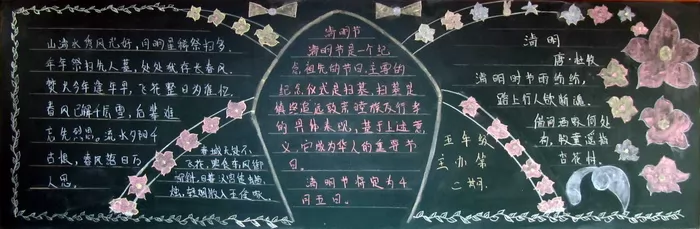 山清水秀风光好，月明星稀祭扫多。
年年祭扫先人墓，处处犹存长春风。
春风已解千层雪，后辈难
忘先烈恩。流水夕阳千
古恨，春风
人思。
春城无处不
飞花，寒食东风御
柳斜。日暮汉宫传蜡
烛，轻烟散入王侯家。
清明节
清明节是一个纪
念祖先的节日。主要的
纪念仪式是扫墓，扫墓是
慎终追远敦亲睦族及行孝
的具体表现，基于上述意
义，它成为华人的重要节
日。
清明节得定为4
月五日。
五年级
主办第
二期
清明
唐·杜牧
清明时节雨纷纷，
路上行人欲断魂。
借问酒家何处
有，牧童遥指
杏花村。